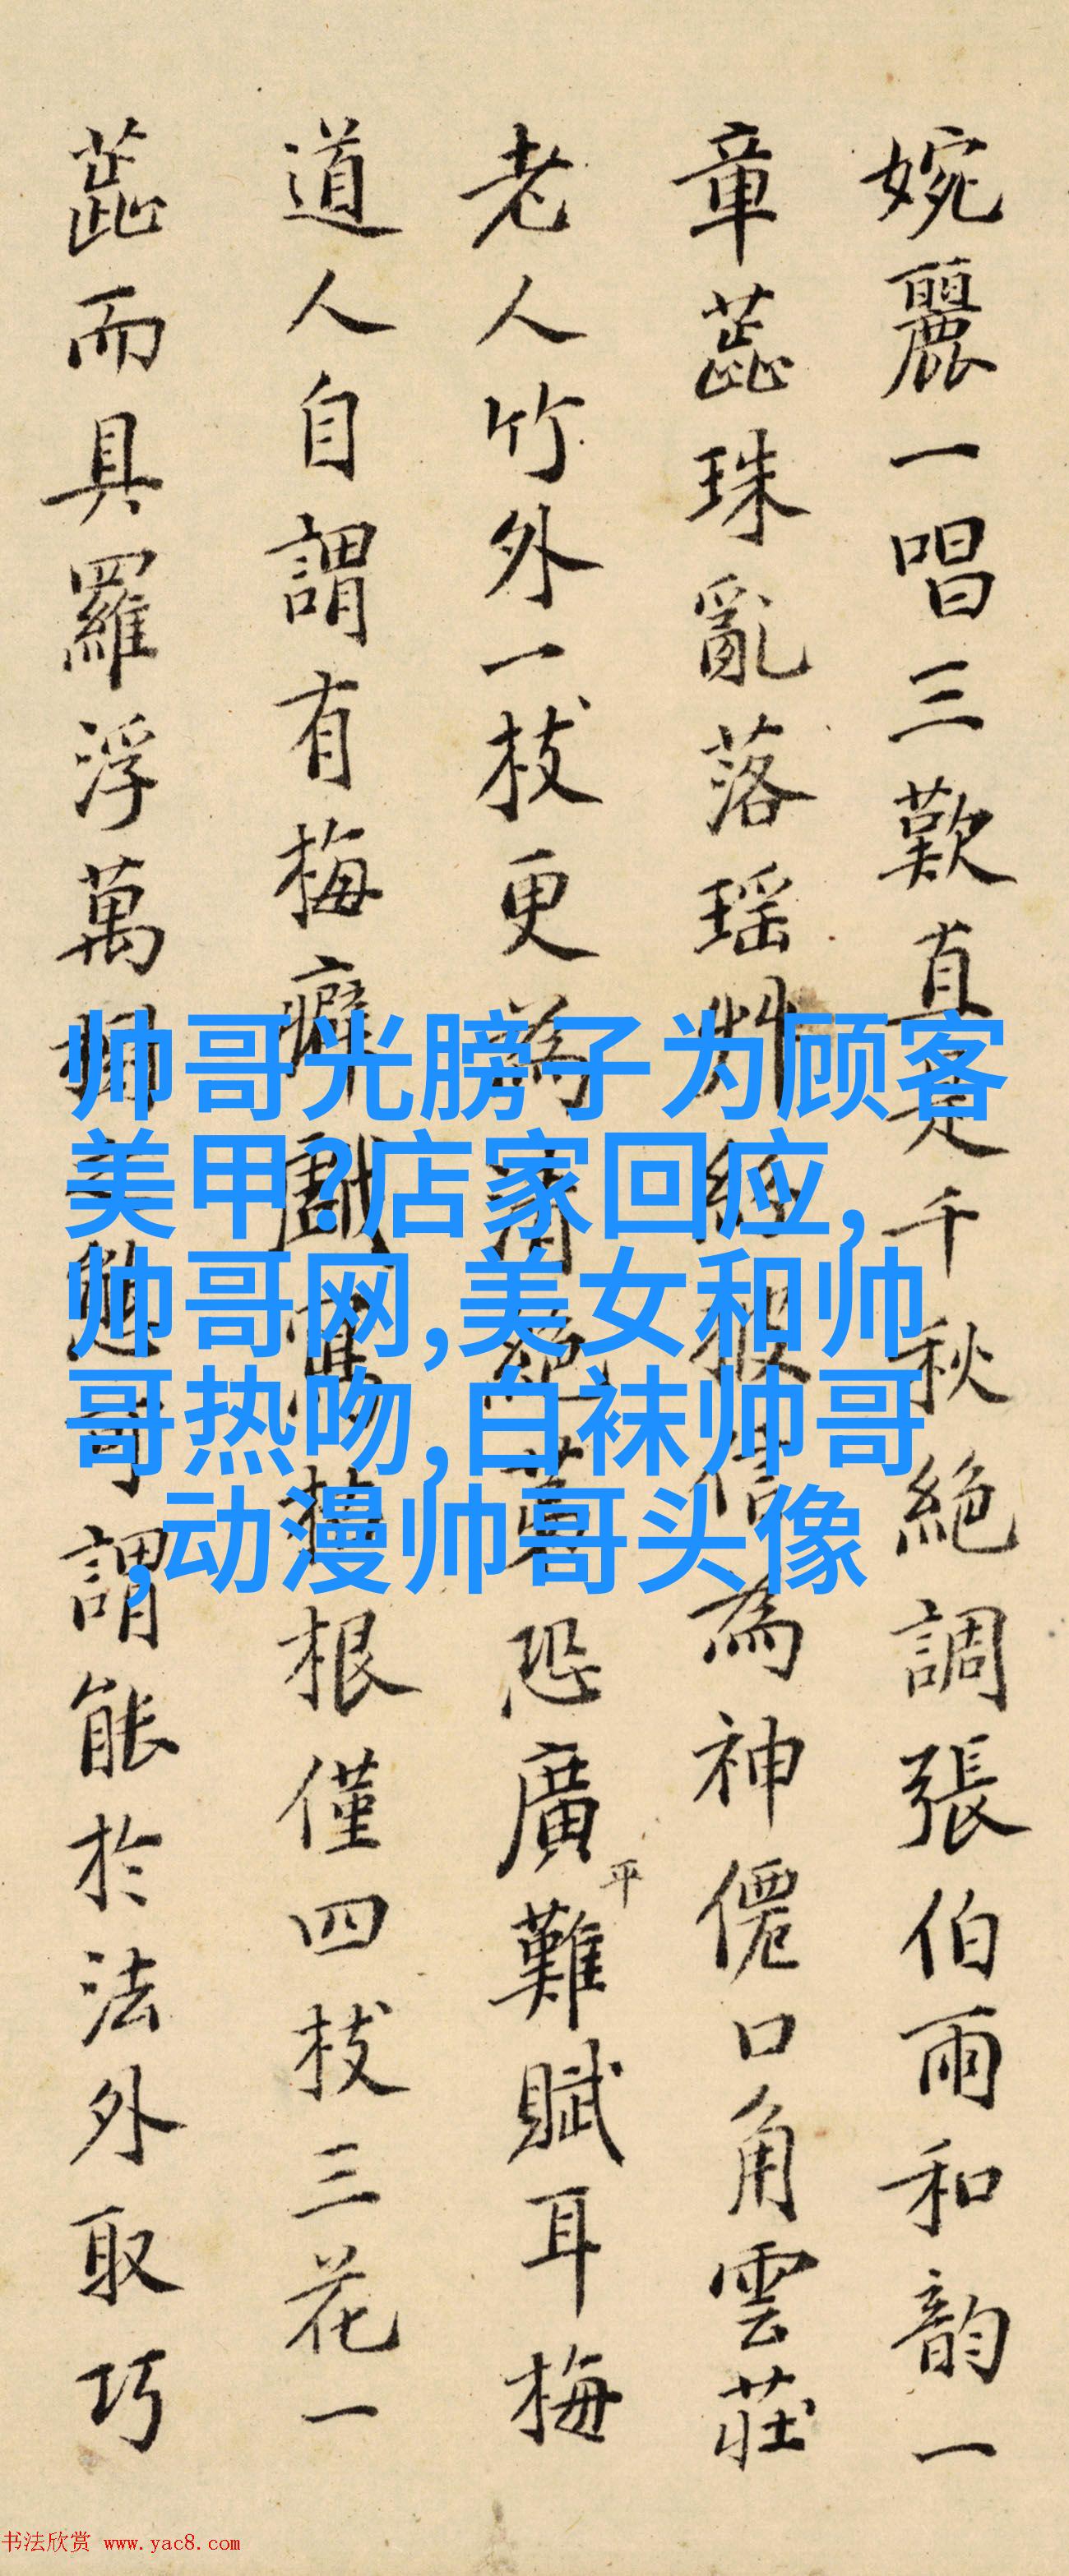 婉麗一唱三歎直是千秋絕調張伯雨和韵一
章蕊珠亂落瑶艸為神僊口角雲莊
老人竹外一枝更為清恐廣平難賦耳梅
道人自謂有梅癖戲寫根僅四枝三花一
蕊而具羅浮萬謂能於法外取巧
帅哥光膀子为顾客
美甲?店家回应,
帅哥网,美女和帅
哥热吻,白袜帅哥
,动漫帅哥头像
书法欣赏 www.yac8.com